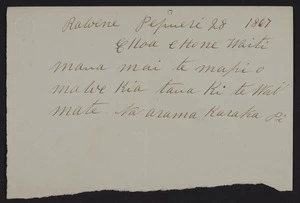 Rawine Pepueri 28 1867
E Hoa E Hone Waiti
mana mai te mapi o
mawe kia tana ki te Wai
mate Na arama Karaka Pi